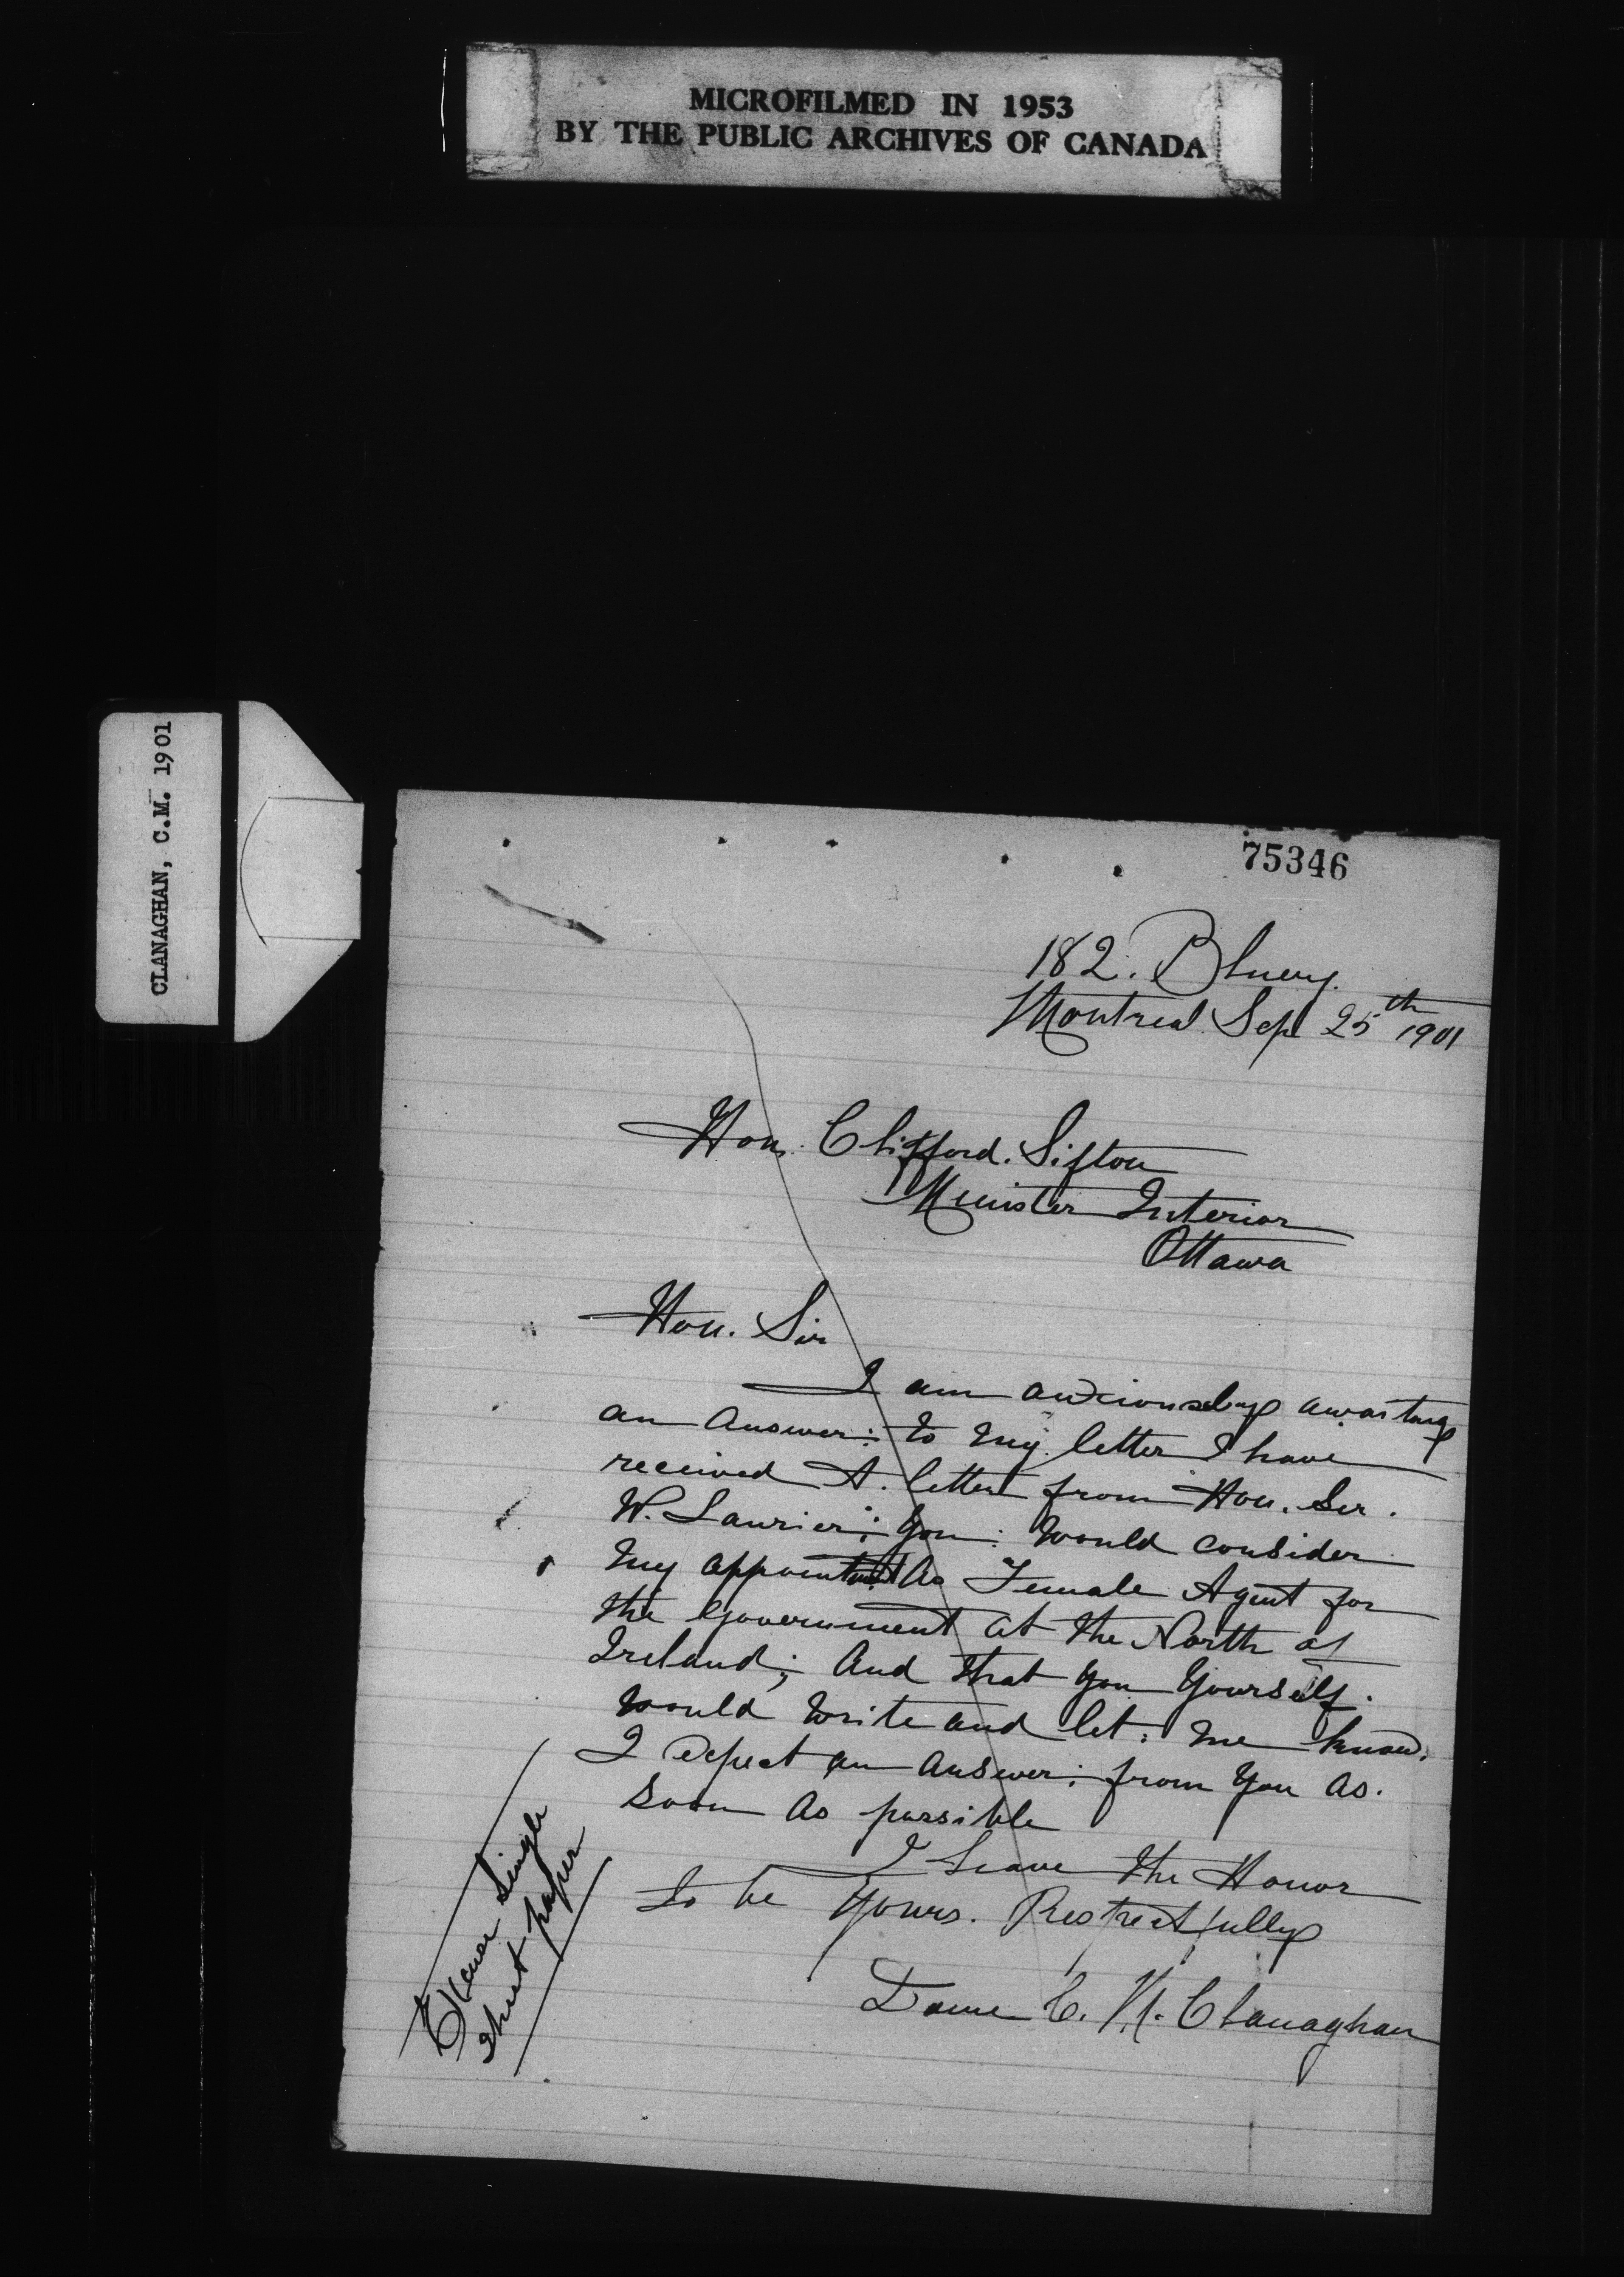 MICROFILMED IN 1953
BY THE PUBLIC ARCHIVES OF CANADA
CLANAGHAN, C.M. 1901
75346
182. Bluery.
Montreal Sep 25th 1901
Hon. Clifford. Sifton
Minister Interior
Ottawa
Hon. Sir
I am anxiously awaiting
an Answer: to my letter I have
received A. letter from Hon. Sir.
W. Laurier; you: would consider
my appointment As Female Agent for
the Government at the North of
Ireland; And that you Yourself.
would write and let: me know.
I expect an answer: from you as.
soon as possible
I Leave the Honor
to be Yours. Respectfully
Dame C. M. Clanaghan
Excuse Single
sheet paper